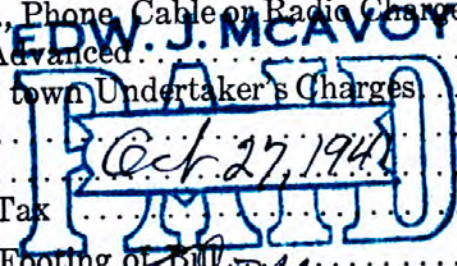 ., Phone, Cable or Radio Charge
EDW. J. MCAVOY
Advanced
town Undertaker's Charges
PAID
Oct 27, 194
Tax
Footing of Bill